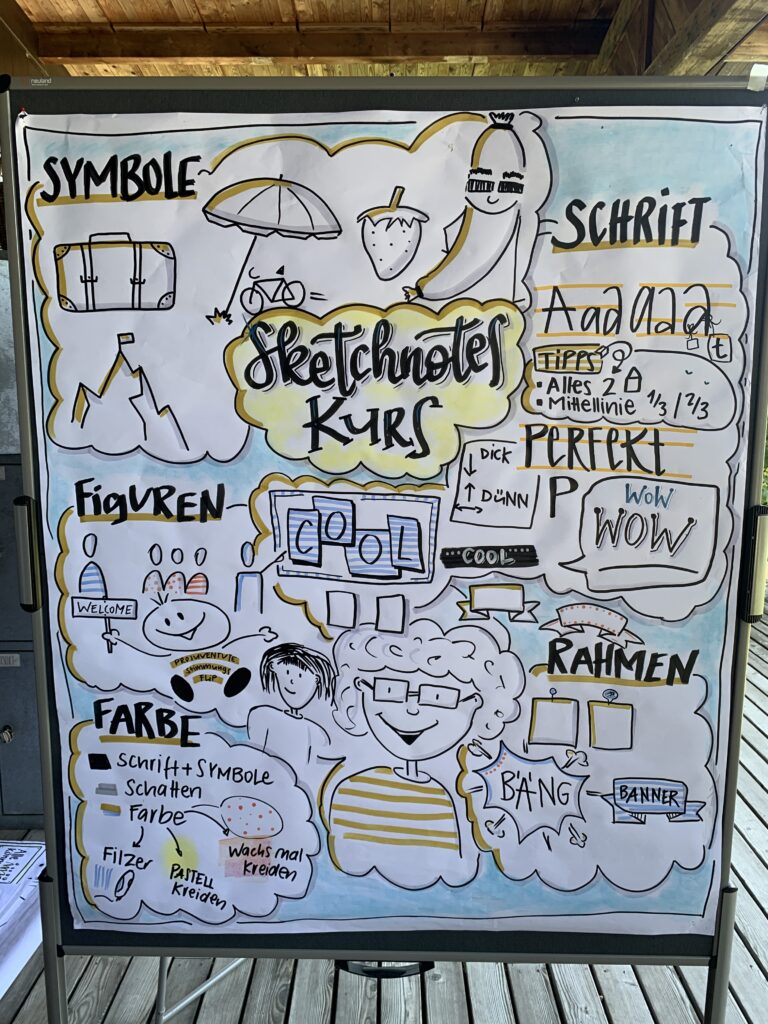 neuland
SYMBOLE
Sketchnotes
Kurs
SCHRIFT
Aaa aaa
t
TIPPS
• Alles 2
• Mittellinie 1/3 | 2/3
PERFEKT
P
Dick
DÜNN
WOW
WOW
FiGUREN
COOL
COOL
WELCOME
PROJUVENTUTE
Stimmungs
FLiP
RAHMEN
BÄNG
BANNER
FARBE
Schrift + SYMBOLE
Schatten
Farbe
Filzer
PASTELL
Kreiden
Wachs mal
Kreiden